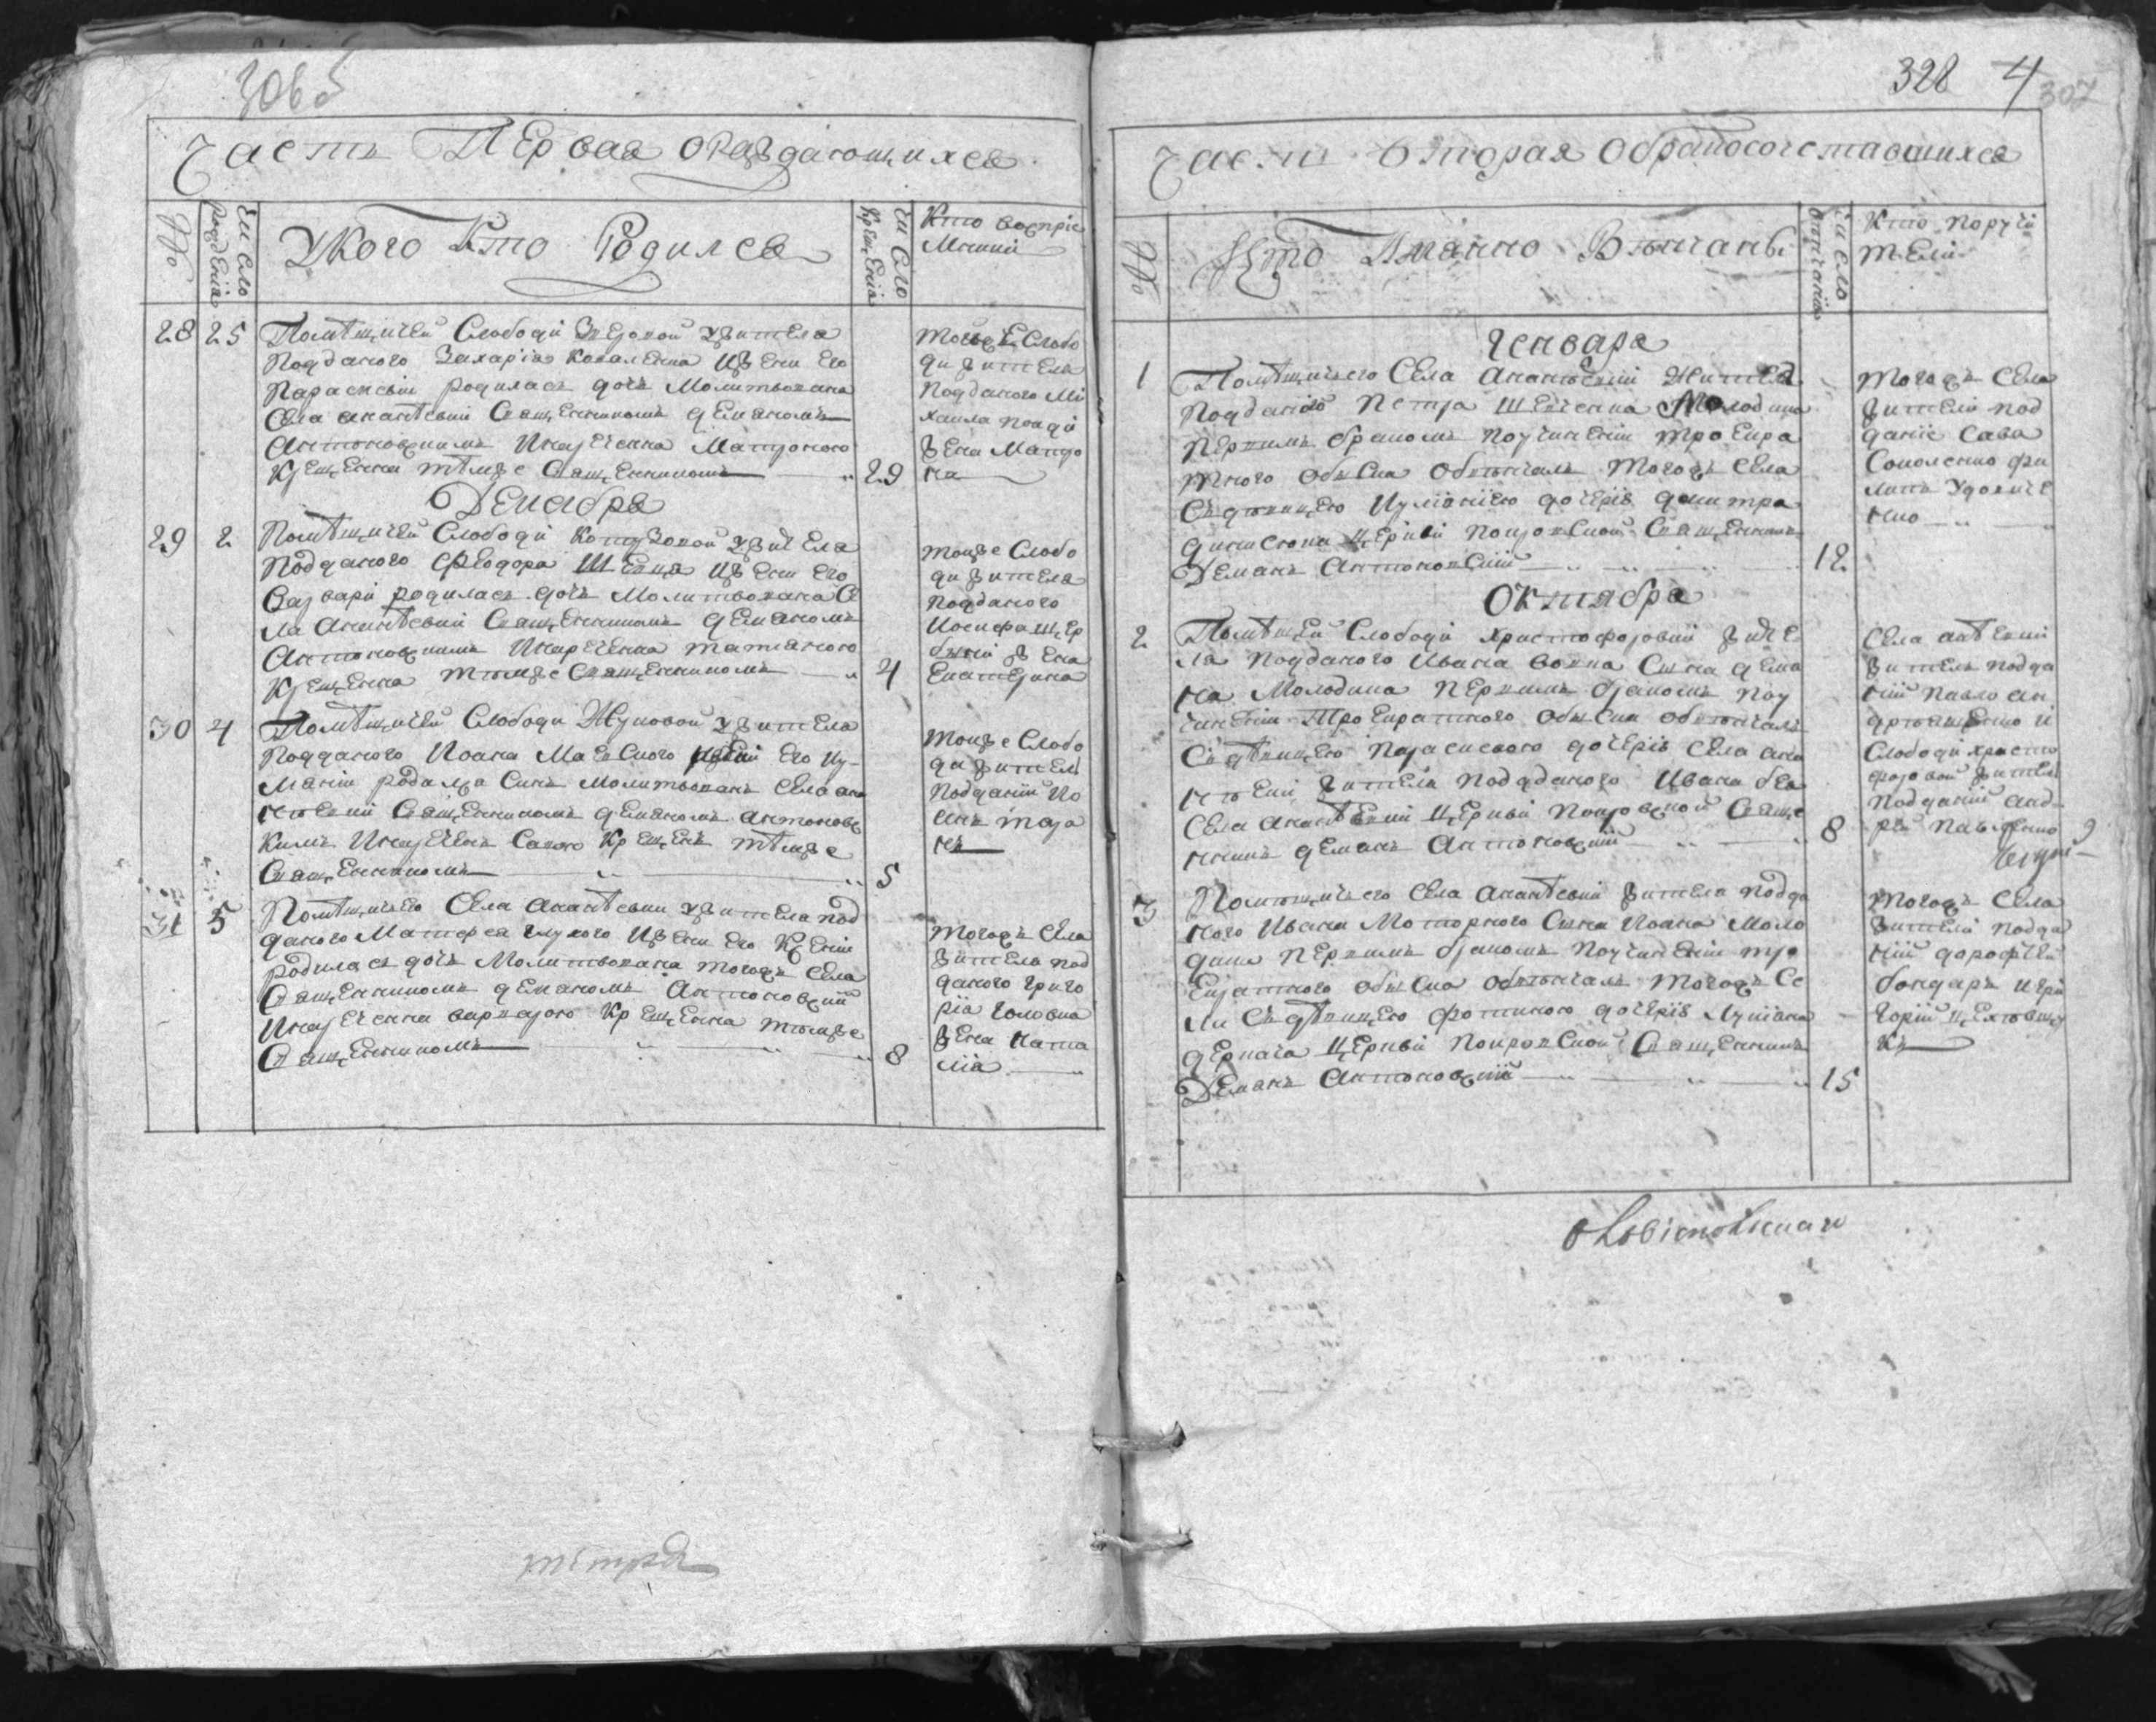 306б
Часть Первая ораждающихся
№
Число рожденія
Укого Кто Родился
Число крещенія
Кто воспріе
мники
28 25 Помѣщичей Слободи Зведовой жителя
подданого Захарія Коваленка Изжени Его
Параскевіи родилась дочь Молитвована
Села Ананѣевки Священникомъ Деманомъ
Антоновскимъ Инаречена Матроною
Крещенна тѣмже Священникомъ 29
тоейже Слобо
ди жителя
подданого Ми
хаила
жена Матро
на
Декабря
29 2 Помѣщичей Слободи жителя
подданого Феодора Шевца Изжени Его
Варвари родилась дочь Молитвована Се
ла Ананѣевки Священникомъ Деманомъ
Антоновскимъ Инаречена Татианою
Крещенна тѣмже Священникомъ 4
тоиже Слобо
ди жителя
подданого
Иосифа Щер
жена
Екатерина
30 4 Помѣщичей Слободи Жуковой жителя
подданого Иоана Маевского Изжени Его Иу-
ліаніи родился Синъ Молитвованъ Села Ана
нѣевки Священникомъ Деманомъ Антоновс
кимъ Инареченъ Савою Крещенъ тѣмже
Священникомъ 5
тоиже Слобо
ди жител
подданій Ио
сипъ Тара
нъ
31 5 Помѣщичьего Села Ананѣевки жителя под
даного Матфея Глухого Изжени Его Ксеніи
родилась дочь Молитвована тогожъ Села
Священникомъ Деманомъ Антоновскимъ
Инаречена Варварою Крещенна тѣмже
Священникомъ 8
тогожъ Села
жителя под
даного Григо
рія Головка
жена Ната
лія
328 4 307
Часть вторая обракосочетавшихся
№
Кто Имянно Вѣнчаны
Число вѣнчанія
Кто поручи
тели
Генваря
1 Помѣщичьего Села Ананѣевки жителя
подданого Петра Шевченка Молодика
первимъ бракомъ поучиненіи троекра
тного обиска обвѣнчалъ тогожъ Села
Сдѣвицею Иулианіею дочерію Дмитра
церкви покровской Священникъ
Деманъ Антоновскій 12
тогожъ Села
жители под
даніе Сава
Соколенко Фи
липъ Удовиче
нко
Октября
2 Помѣщичей Слободи Христофоровки жите
ля подданого Ивана Вовка Сина Дема
на Молодика первимъ бракомъ поу
чиненіи троекратного обиска обвѣнчалъ
Сдѣвицею Параскевою дочерію Села Ана
нѣевки жителя подданого Ивана
Села Ананѣевки церкви покровской Свяще
нникъ Деманъ Антоновскій 8
Села Анѣевки
жителя подда
ній Павло Ан
дрѣященко и
Слободи Христо
форовки жител
подданій Анд-
рей
3 Помѣщичьего Села Ананѣевки жителя подда
ного Ивана Моторного Сина Иоана Моло
дика первимъ бракомъ поучиненіи тро
екратного обиска обвѣнчалъ тогожъ Се
ла Сдѣвицею Фотиною дочерію Лукіана
Деркача церкви покровской Священникъ
Деманъ Антоновскій 15
тогожъ Села
жители подда
ніи Дорофей
Бондарь Игри
горій
къ